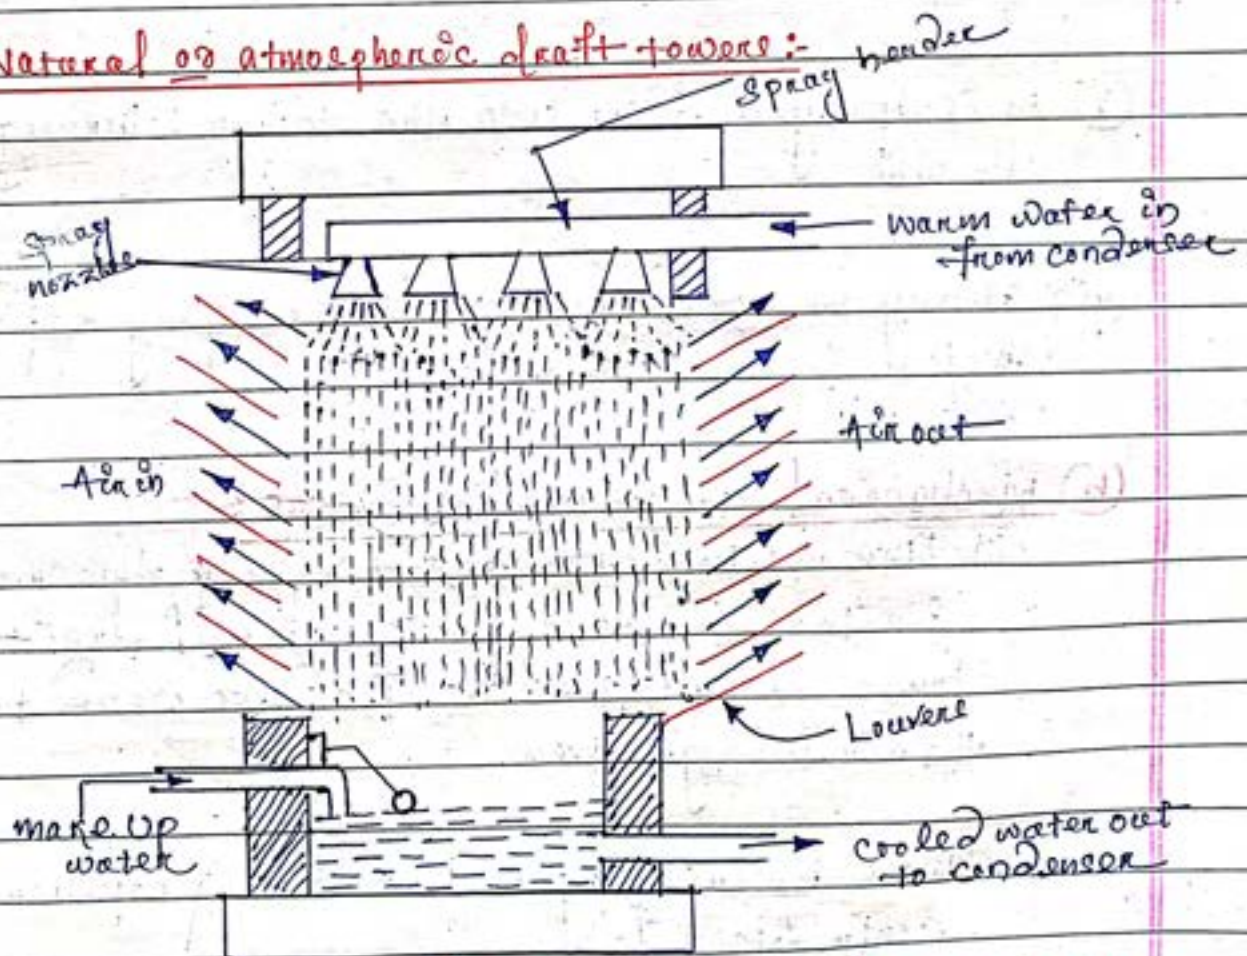 Natural or atmospheric draft towers:-
spray header
spray
nozzle
warm water in
from condenser
Air in
Air out
Louvers
make up
water
cooled water out
to condenser